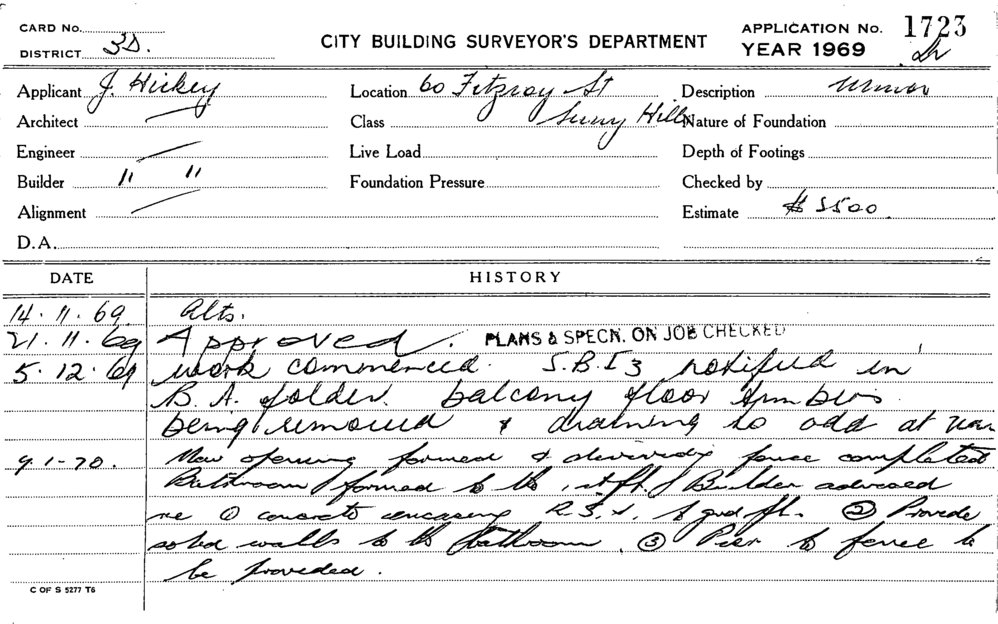 CARD No. APPLICATION No. 1723
DISTRICT 3D. CITY BUILDING SURVEYOR'S DEPARTMENT YEAR 1969
Applicant J. Hickey Location 60 Fitzroy St Description minor
Architect Class Surry Hills Nature of Foundation
Engineer Live Load Depth of Footings
Builder " " Foundation Pressure Checked by
Alignment Estimate $5500.
D.A.
DATE HISTORY
14.11.69 Alts.
21.11.69 Approved. PLANS & SPECN. ON JOB CHECKED
5.12.69 work commenced. S.B.I 3 notified in
B.A. folder. balcony floor timbers
being removed & draining to add at rear
9.1-70. New opening formed & dividing fence completed
Bathroom formed to the 1st fl. Builder advised
re ① concrete encasing R.S.J. to grd. fl. ② Provide
solid walls to the bathroom. ③ Pier to fence to
be provided.
C OF S 5277 T6